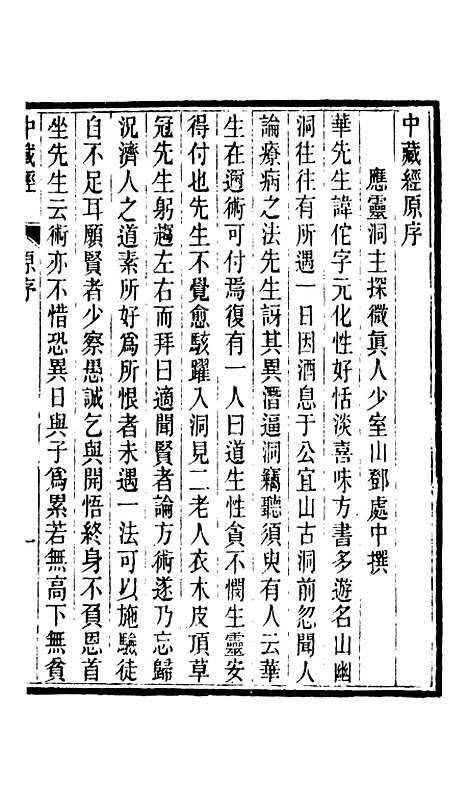 中藏經原序
應靈洞主探微眞人少室山鄧處中撰
華先生諱佗字元化性好恬淡喜味方書多遊名山幽
洞往往有所遇一日因酒息于公宜山古洞前忽聞人
論療病之法先生訝其異潛逼洞竊聽須臾有人云華
生在邇術可付焉復有一人曰道生性貪不憫生靈安
得付也先生不覺愈駭躍入洞見二老人衣木皮頂草
冠先生躬趨左右而拜曰適聞賢者論方術遂乃忘歸
況濟人之道素所好爲所恨者未遇一法可以施驗徒
自不足耳願賢者少察愚誠乞與開悟終身不負恩首
坐先生云術亦不惜恐異日與子爲累若無高下無貧
中藏經 原序 一